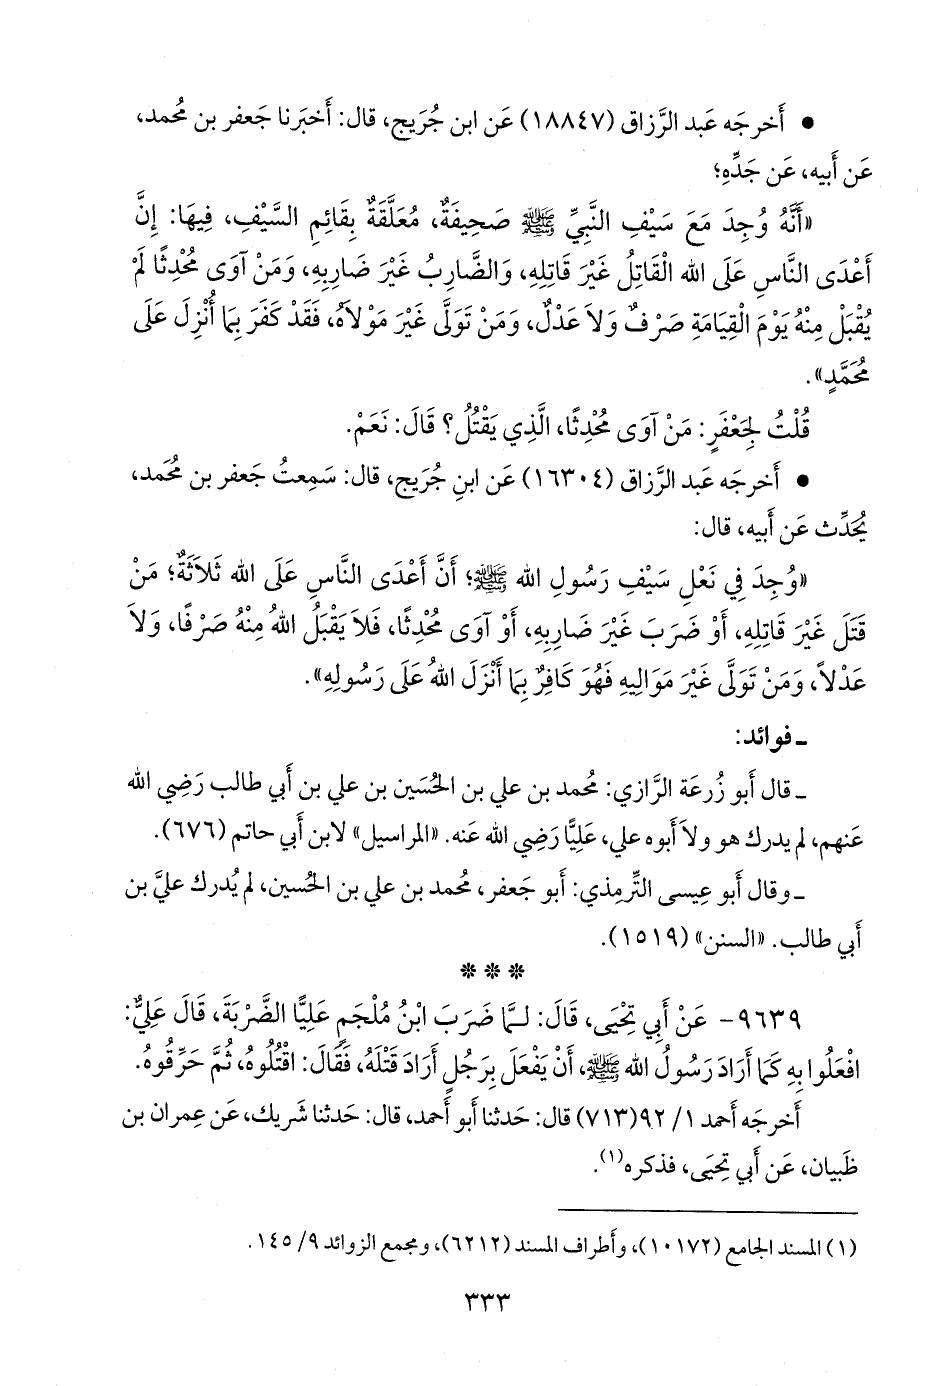 • أَخرجَه عَبد الرَّزاق (١٨٨٤٧) عَن ابن جُرَيج، قال: أَخبَرنا جَعفر بن مُحمد،
عَن أَبيه، عَن جَدِّهِ؛
«أَنَّهُ وُجِدَ مَعَ سَيْفِ النَّبِيِّ ﷺ صَحِيفَةٌ، مُعَلَّقَةٌ بِقَائِمِ السَّيْفِ، فِيهَا: إِنَّ
أَعْدَى النَّاسِ عَلَى الله الْقَاتِلُ غَيْرَ قَاتِلِهِ، وَالضَّارِبُ غَيْرَ ضَارِبِهِ، وَمَنْ آوَى مُحْدِثًا لَمْ
يُقْبَلْ مِنْهُ يَوْمَ الْقِيَامَةِ صَرْفٌ وَلاَ عَدْلٌ، وَمَنْ تَوَلَّى غَيْرَ مَوْلاَهُ، فَقَدْ كَفَرَ بِمَا أُنْزِلَ عَلَى
مُحَمَّدٍ».
قُلْتُ لِجَعْفَرٍ: مَنْ آوَى مُحْدِثًا، الَّذِي يَقْتُلُ؟ قَالَ: نَعَمْ.
• أَخرجَه عَبد الرَّزاق (١٦٣٠٤) عَن ابنِ جُرَيج، قال: سَمِعتُ جَعفر بن مُحَمد،
يُحَدِّث عَن أَبيه، قال:
«وُجِدَ فِي نَعْلِ سَيْفِ رَسُولِ الله ﷺ؛ أَنَّ أَعْدَى النَّاسِ عَلَى الله ثَلاَثَةٌ؛ مَنْ
قَتَلَ غَيْرَ قَاتِلِهِ، أَوْ ضَرَبَ غَيْرَ ضَارِبِهِ، أَوْ آوَى مُحْدِثًا، فَلاَ يَقْبَلُ اللهُ مِنْهُ صَرْفًا، وَلاَ
عَدْلاً، وَمَنْ تَوَلَّى غَيْرَ مَوَالِيهِ فَهُوَ كَافِرٌ بِمَا أَنْزَلَ اللهُ عَلَى رَسُولِهِ».
ـ فوائد:
ـ قال أَبو زُرعَة الرَّازي: مُحمد بن علي بن الحُسَين بن علي بن أَبي طالب رَضِي الله
عَنهم، لم يدرك هو ولاَ أَبوه علي، عَلِيًّا رَضِي الله عَنه. «المراسيل» لابن أَبي حاتم (٦٧٦).
ـ وقال أَبو عِيسى التِّرمِذي: أَبو جَعفر، مُحمد بن علي بن الحُسين، لم يُدرك عليَّ بن
أَبي طالب. «السنن» (١٥١٩).
* * *
٩٦٣٩- عَنْ أَبِي تِحْيَى، قَالَ: لَمَّا ضَرَبَ ابْنُ مُلْجَمٍ عَلِيًّا الضَّرْبَةَ، قَالَ عَلِيٌّ:
افْعَلُوا بِهِ كَمَا أَرَادَ رَسُولُ الله ﷺ، أَنْ يَفْعَلَ بِرَجُلٍ أَرَادَ قَتْلَهُ، فَقَالَ: اقْتُلُوهُ، ثُمَّ حَرِّقُوهُ.
أَخرجَه أَحمد ١/ ٩٢(٧١٣) قال: حَدثنا أَبو أَحمد، قال: حَدثنا شَريك، عَن عِمران بن
ظَبيان، عَن أَبي تِحيَى، فذكره(١).
(١) المسند الجامع (١٠١٧٢)، وأَطراف المسند (٦٢١٢)، ومجمع الزوائد ٩/ ١٤٥.
٣٣٣